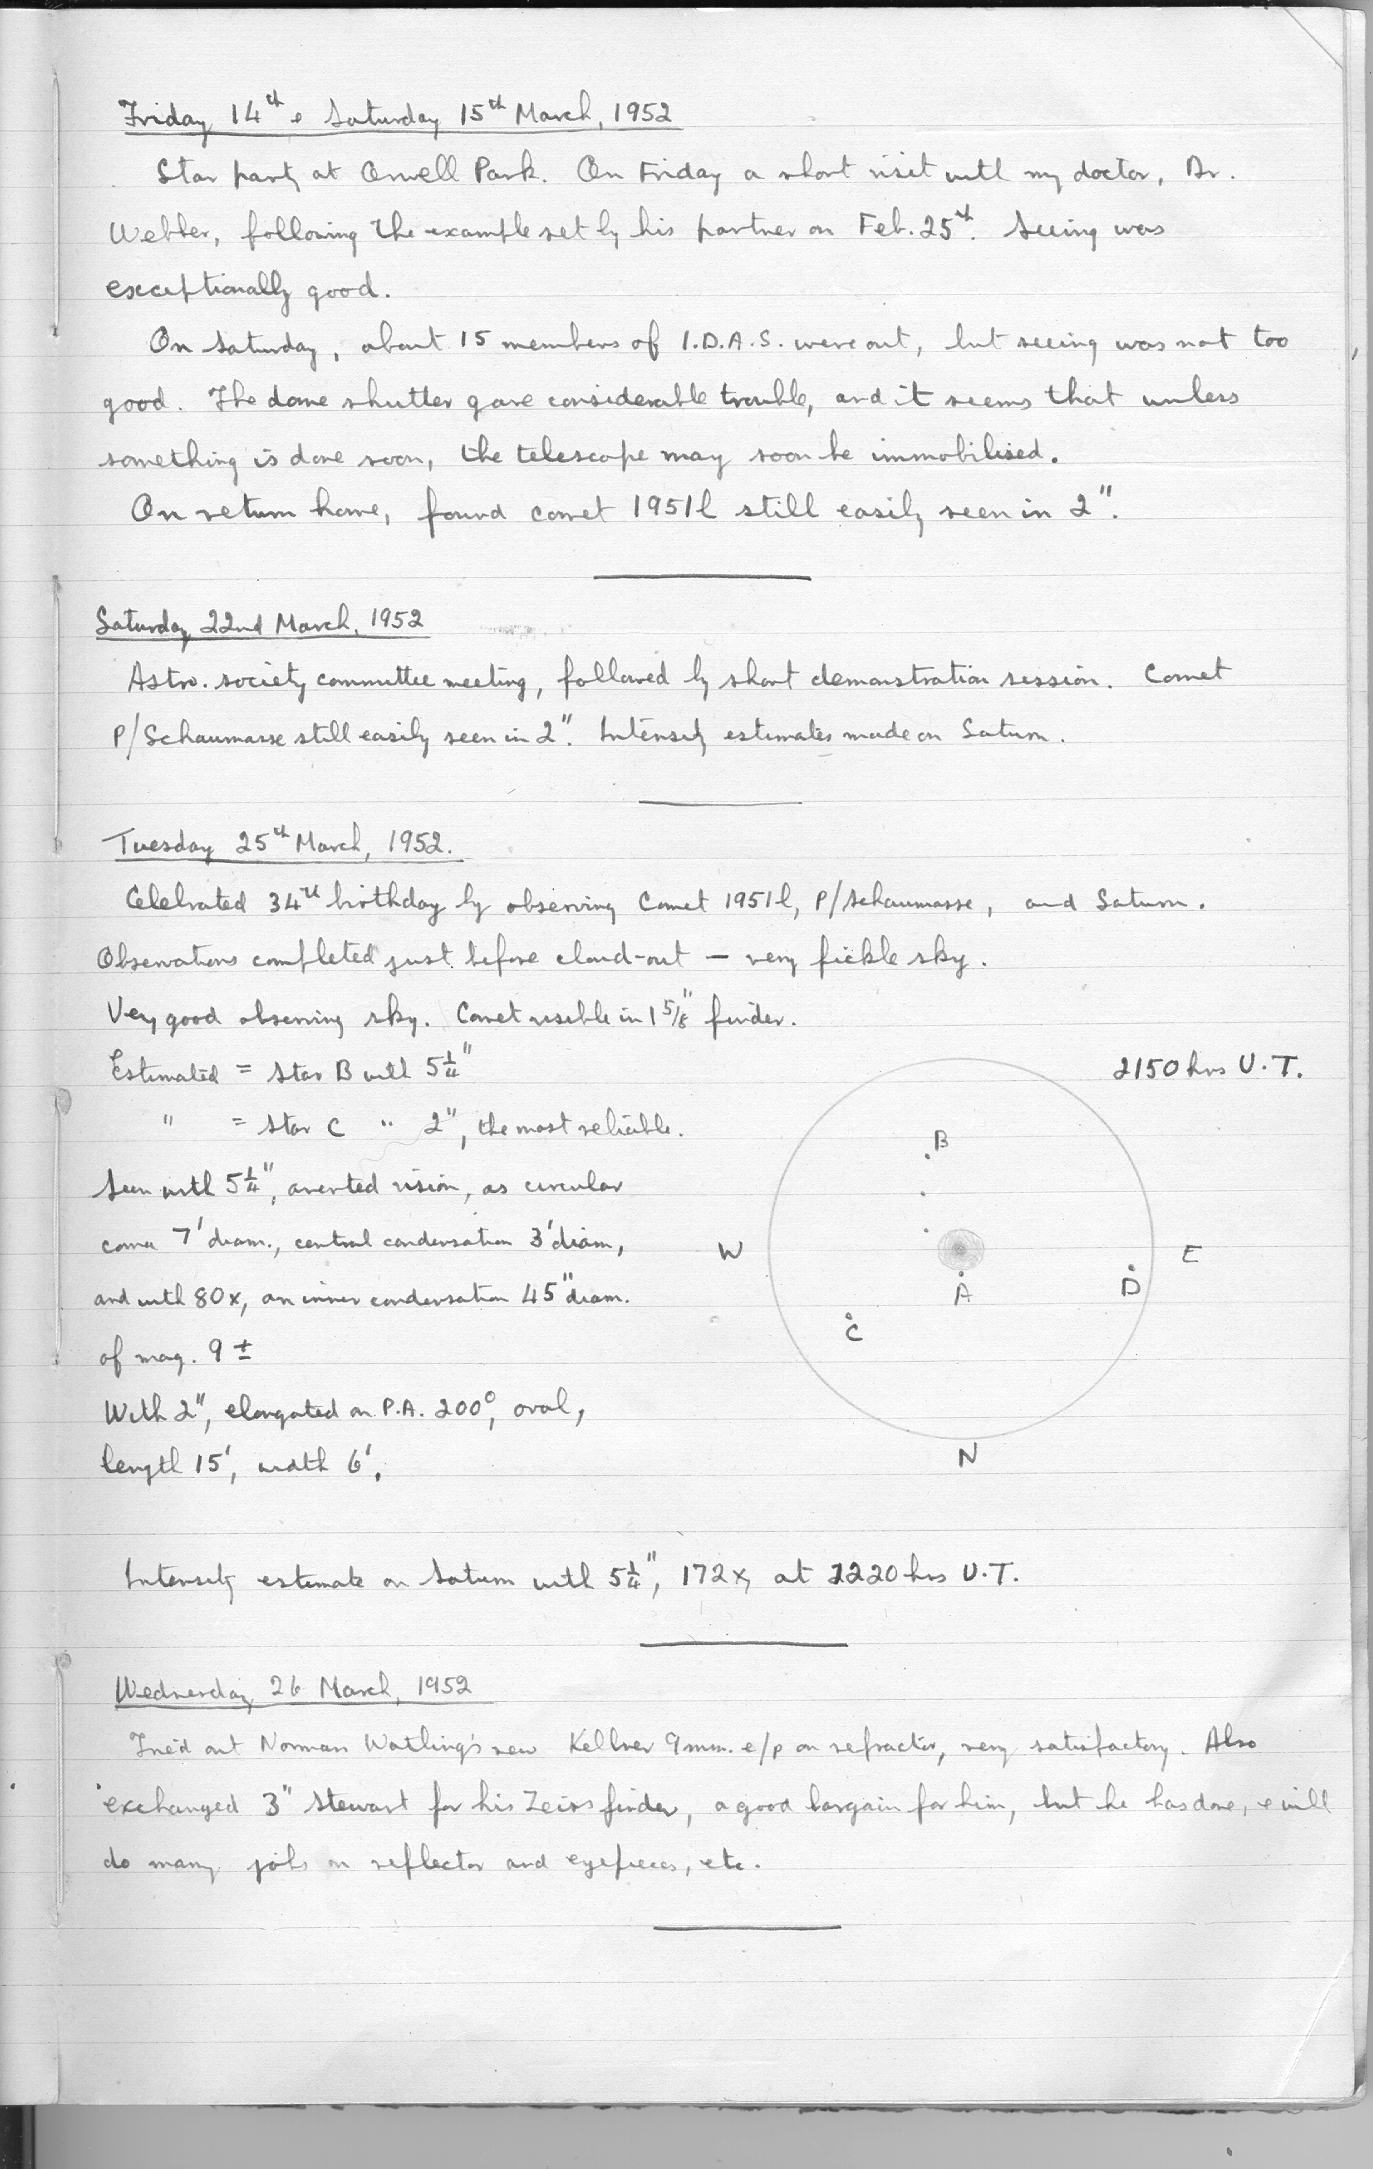 Friday 14th & Saturday 15th March, 1952
Star party at Orwell Park. On Friday a short visit with my doctor, Dr.
Webber, following the example set by his partner on Feb. 25th. Seeing was
exceptionally good.
On Saturday, about 15 members of I.D.A.S. were out, but seeing was not too
good. The dome shutter gave considerable trouble, and it seems that unless
something is done soon, the telescope may soon be immobilised.
On return home, found comet 1951l still easily seen in 2".
Saturday 22nd March, 1952
Astro. society committee meeting, followed by short demonstration session. Comet
P/Schaumasse still easily seen in 2". Intensity estimates made on Saturn.
Tuesday 25th March, 1952.
Celebrated 34th birthday by observing Comet 1951l, P/Schaumasse, and Saturn.
Observations completed just before cloud-out — very fickle sky.
Very good observing sky. Comet visible in 1 5/8" finder.
Estimated = star B with 5¼"
" = star C " 2", the most reliable.
Seen with 5¼", averted vision, as circular
coma 7' diam., central condensation 3' diam,
and with 80x, an inner condensation 45" diam.
of mag. 9 ±
With 2", elongated on P.A. 200°, oval,
length 15', width 6'.
2150 hrs U.T.
B
W
E
A
D
C
N
Intensity estimate on Saturn with 5¼", 172x, at 2220 hrs U.T.
Wednesday 26 March, 1952
Tried out Norman Watling's new Kellner 9mm. e/p on refractor, very satisfactory. Also
exchanged 3" Stewart for his Zeiss finder, a good bargain for him, but he has done, & will
do many jobs on reflector and eyepieces, etc.